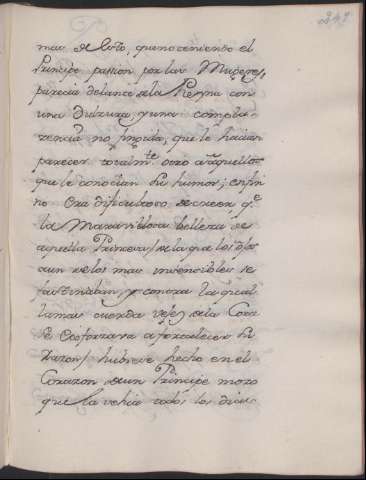 242
mas de esto, que no teniendo el
Principe passion por las Mugeres,
parecia delante de la Reyna con
una dulzura, y una compla-
zencia no fingida, que le hacian
parecer totalm.te otro a aquellos
que le conocian su humor; en fin
no era dificultoso de creer q.e
la Maravillosa belleza de
aquella Princesa / de la que los ojos
aun de los mas invencibles se
fascinaban, y contra la qual
la mas cuerda vejez de la Corte
se esforzava a fortalecer su
Razon / hubiese hecho en el
Corazon de un Principe mozo
que la vehia todos los dias